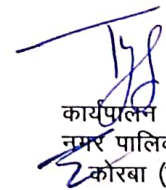 कार्यपालन
नगर पालि
कोरबा (